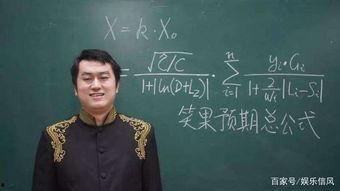 X=k·X₀
= √(2/C) / (1+|ln(D+L₂)|) · ∑ⁿᵢ₌₁ (yᵢ·Gᵢ) / (1+ 2/Wᵢ |Lᵢ-Sᵢ|)
笑果预期总公式
百家号/娱乐信风